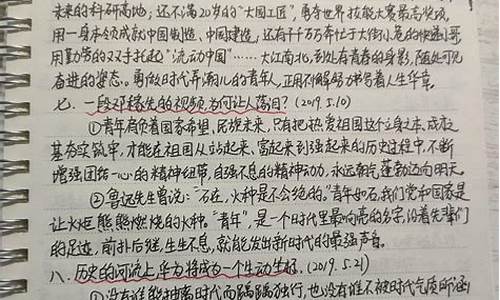 未来的科研高地；还不满20岁的“大国工匠”，勇夺世界技能大赛最高奖项，
用一身本领成就中国制造、中国建造；还有千千万万奔忙于大街小巷的快递小哥
用勤劳的双手托起“流动中国”……大江南北，到处有青春的身影，随处可见
奋进的姿态。勇做时代弄潮儿的青年人，正用不懈努力书写着人生华章。
七、一段邓稼先的视频，为何让人落泪？(2019.5.10)
①青年肩负着国家希望、民族未来，只有把热爱祖国这个立身之本、成才
基夯实筑牢，才能在祖国从站起来、富起来到强起来的历史过程中，不断
增强团结一心的精神纽带、自强不息的精神动力，永远朝气蓬勃迈向明天。
②鲁迅先生曾说：“石在，火种是不会绝的。”青年如石，我们党和国家是
让火炬熊熊燃烧的火种。“青年”，是一个时代里最响亮的名字，沿着先辈们
的足迹，前扑后继、生生不息，就能发出新时代的最强声音。
八、历史的河流上，华为将成为一个生动坐标。(2019.5.21)
①没有谁能抽离时代而踽踽独行，也没有谁不被时代气质所涵